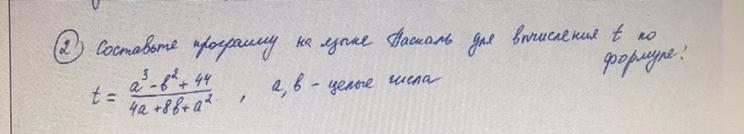 ② Составьте программу на языке Паскаль для вычисления t по
формуле:
t = (a³ - в² + 44) / (4a + 8в + a²) , a, в - целые числа